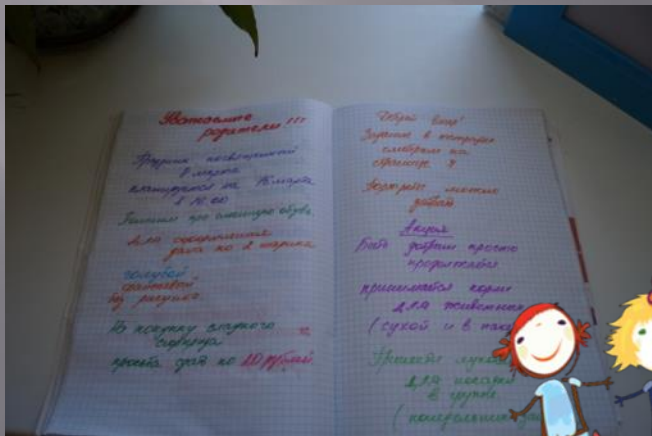 Уважаемые
родители!!!
Праздник посвященный
8 марта
планируется на 16 марта
в 16.00
Помним про сменную обувь
Для оформления
зала по 2 шарика
голубой
без рисунка
На покупку сладкого
сюрприза
просьба сдать по 20 рублей
Добрый вечер!
Задание в тетрадях
смотрим на
странице 7
Портреты можно
забрать
Акция
Быть добрым просто
продолжается
принимается корм
для животных
(сухой и в
Приносите
для посадки
в группе